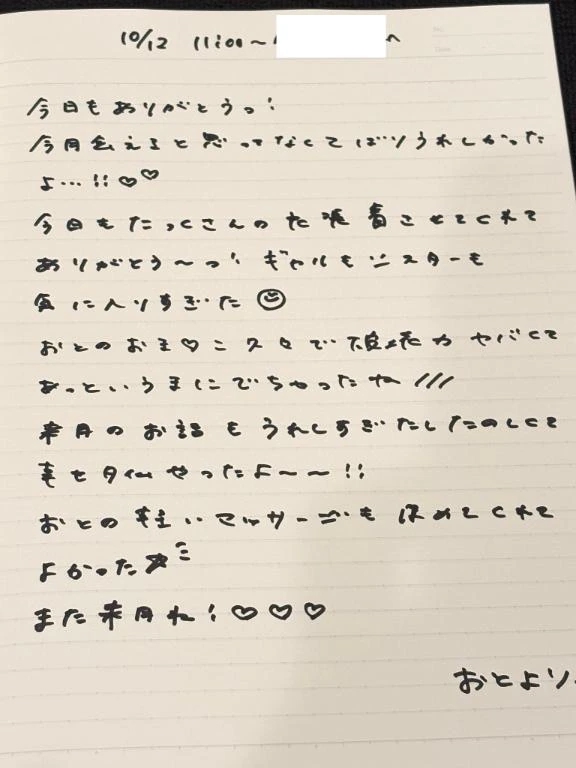 10/12 11:00～
今日もありがとうっ!
今月会えると思ってなくてばりうれしかった
よ…!!♡♡
今日もたっくさんのた 着させてくれて
ありがとう〜っ! ギャルもシスターも
気に入りすぎた☺
おとのおま♡こ久々で 力ヤバくて
あっというまにでちゃったね///
来月のお話もうれしすぎたしたのしくて
タイムやったよ〜〜!!
おとの軽いマッサージもほめてくれて
よかった
また来月ね!♡♡♡
おとより